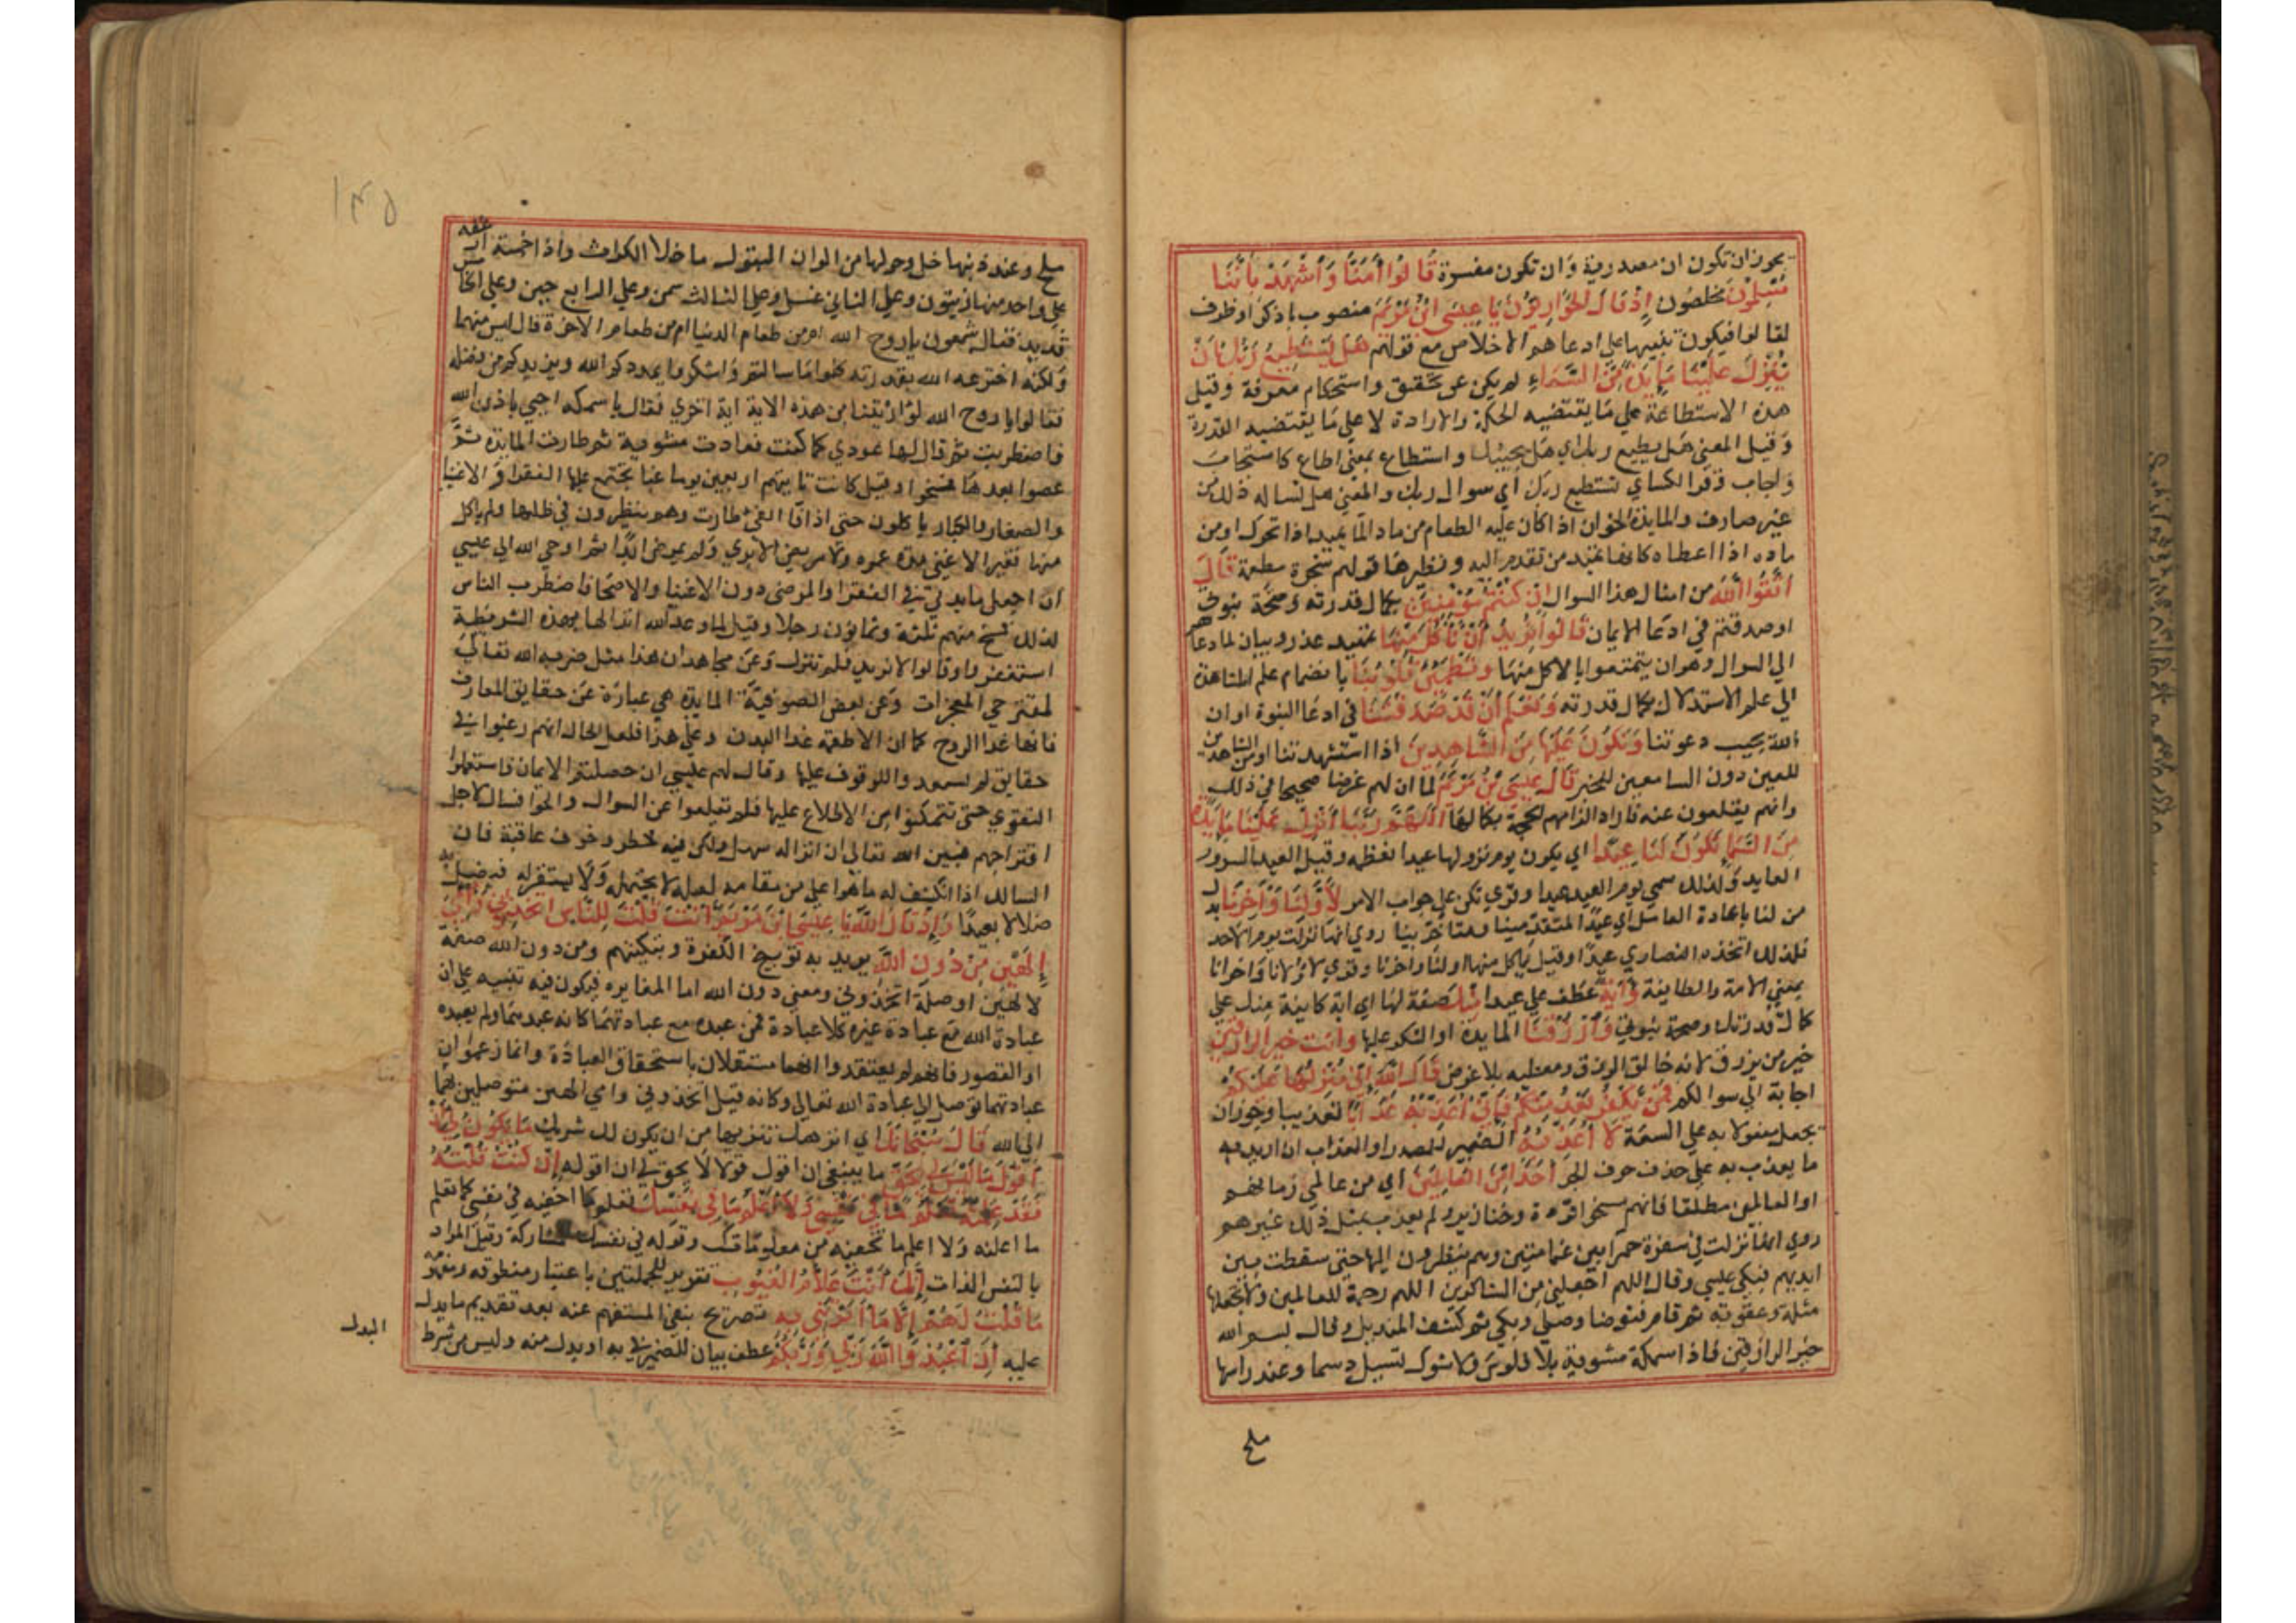 يجوز ان تكون ان مصدرية وان تكون مفسرة قَالُوا اٰمَنَّا وَاشْهَدْ بِاَنَّنَا
مُسْلِمُوْنَ مخلصون اِذْ قَالَ الْحَوَارِيُّونَ يَا عِيسَى ابْنَ مَرْيَمَ منصوب باذكر او ظرف
لقالوا فيكون تنبيها على ادعاهم الاخلاص مع قولهم هَلْ يَسْتَطِيعُ رَبُّكَ اَنْ
يُنَزِّلَ عَلَيْنَا مَايِدَةً مِنَ السَّمَاءِ لم يكن عن تحقيق واستحكام معرفة وقيل
هذه الاستطاعة على ما يقتضيه الحكمة والارادة لا على ما يقتضيه القدرة
وقيل المعنى هل يطيع ربك اي هل يجيبك واستطاع بمعنى اطاع كاستجاب
واجاب وقرا الكساي تستطيع ربك اي سوال ربك والمعنى هل تساله ذلك من
غير صارف والمايدة الخوان اذا كان عليه الطعام من ماد الما يميد اذا تحرك او من
ماده اذا اعطاه كانها تميد من تقدم اليه ونظيرها قولهم شجرة مطعمة قَالَ
اتَّقُوا اللَّهَ من امثال هذا السوال اِنْ كُنْتُمْ مُؤْمِنِينَ بكمال قدرته وصحة نبوتي
او صدقتم في ادعا الايمان قَالُوا نُرِيدُ اَنْ نَأْكُلَ مِنْهَا تمهيد عذر وبيان لما دعاهم
الى السوال وهو ان يتمتعوا بالاكل منها وَتَطْمَئِنَّ قُلُوبُنَا بانضمام علم المشاهدة
الى علم الاستدلال بكمال قدرته وَنَعْلَمَ اَنْ قَدْ صَدَقْتَنَا في ادعا النبوة او ان
الله يجيب دعوتنا وَنَكُونَ عَلَيْهَا مِنَ الشَّاهِدِينَ اذا استشهدتنا او من الشاهدين
للعين دون السامعين للخبر قَالَ عِيسَى بْنُ مَرْيَمَ لما ان لهم غرضا صحيحا في ذلك
وانهم يقلعون عنه فاراد الزامهم الحجة بكمالها اَللَّهُمَّ رَبَّنَا اَنْزِلْ عَلَيْنَا مَايِدَةً
مِنَ السَّمَا تَكُونُ لَنَا عِيدًا اي يكون يوم نزولها عيدا نعظمه وقيل العيد السرور
العايد ولذلك سمي يوم العيد عيدا وقري تكن على جواب الامر لِاَوَّلِنَا وَآخِرِنَا بدل
من لنا باعادة العامل اي عيدا لمتقدمينا ومتاخرينا روي انها نزلت يوم الاحد
فلذلك اتخذه النصارى عيدا وقيل ياكل منها اولنا واخرنا وقري لاولانا واخرانا
بمعنى الامة والطايفة وَآيَةً عطف على عيدا مِنْكَ صفة لها اي اية كاينة منك على
كمال قدرتك وصحة نبوتي وَارْزُقْنَا المايدة او الشكر عليها وَاَنْتَ خَيْرُ الرَّازِقِينَ
خير من يرزق لانه خالق الرزق ومعطيه بلا عوض قَالَ اللَّهُ اِنِّي مُنَزِّلُهَا عَلَيْكُمْ
اجابة الى سوالكم فَمَنْ يَكْفُرْ بَعْدُ مِنْكُمْ فَاِنِّي اُعَذِّبُهُ عَذَابًا تعذيبا ويجوز ان
يجعل مفعولا به على السعة لَا اُعَذِّبُهُ الضمير للمصدر او العذاب ان اريد به
ما يعذب به على حذف حرف الجر اَحَدًا مِنَ الْعَالَمِينَ اي من عالمي زمانهم
او العالمين مطلقا فانهم مسخوا قردة وخنازير ولم يعذب بمثل ذلك غيرهم
روي انها نزلت في سفرة حمرا بين غمامتين وهم ينظرون اليها حتى سقطت بين
ايديهم فبكى عيسى وقال اللهم اجعلني من الشاكرين اللهم رحمة للعالمين ولا تجعلها
مثلة وعقوبة ثم قام فتوضا وصلى وبكى ثم كشف المنديل وقال بسم الله
خير الرازقين فاذا سمكة مشوية بلا فلوس ولا شوك تسيل دسما وعند راسها
ملح
١٣٥
ملح وعند ذنبها خل وحولها من الوان البقول ما خلا الكراث واذا خمسة ارغفة
على واحد منها زيتون وعلى الثاني عسل وعلى الثالث سمن وعلى الرابع جبن وعلى الخامس
قديد فقال شمعون يا روح الله امن طعام الدنيا ام من طعام الاخرة قال ليس منهما
ولكنه اخترعه الله بقدرته كلوا ما سالتم واشكروا يمددكم الله ويزيدكم من فضله
فقالوا يا روح الله لو اريتنا من هذه الاية اية اخرى فقال يا سمكة احيي باذن الله
فاضطربت ثم قال لها عودي كما كنت فعادت مشوية ثم طارت المايدة ثم
عصوا بعدها فمسخوا وقيل كانت تاتيهم اربعين يوما غبا يجتمع عليها الفقرا والاغنيا
والصغار والكبار ياكلون حتى اذا فا الفي طارت وهم ينظرون في ظلها ولم ياكل
منها فقير الا غني مدة عمره ولا مريض الا بري ولم يمرض ابدا ثم اوحى الله الى عيسى
ان اجعل مايدتي في الفقرا والمرضى دون الاغنيا والاصحا فاضطرب الناس
لذلك فمسخ منهم ثلثة وثمانون رجلا وقيل لما وعد الله انزالها بهذه الشريطة
استعفوا وقالوا لا نريد فلم تنزل وعن مجاهد ان هذا مثل ضربه الله تعالى
لمقترحي المعجزات وعن بعض الصوفية المايدة هي عبارة عن حقايق المعارف
فانها غذا الروح كما ان الاطعمة غذا البدن وعلى هذا فلعل الحال انهم رغبوا في
حقايق لم يستعدوا للوقوف عليها وقال لهم عيسى ان حصلتم الايمان فاستعملوا
التقوى حتى تتمكنوا من الاطلاع عليها فلم تقلعوا عن السوال والحوا فسال لاجل
اقتراحهم فبين الله تعالى ان انزاله سهل ولكن فيه خطر وخوف عاقبة فان
السالك اذا انكشف له ما هو اعلى من مقامه لعله لا يحتمله ولا يستقر له فيضل به
ضلالا بعيدا وَاِذْ قَالَ اللَّهُ يَا عِيسَى ابْنَ مَرْيَمَ اَاَنْتَ قُلْتَ لِلنَّاسِ اتَّخِذُونِي وَاُمِّيَ
اِلَهَيْنِ مِنْ دُونِ اللَّهِ يريد به توبيخ الكفرة وتبكيتهم ومن دون الله صفة
لالهين او صلة اتخذوني ومعنى دون الله اما المغايرة فيكون فيه تنبيه على ان
عبادة الله مع عبادة غيره كلا عبادة فمن عبده مع عبادتهما كانه عبدهما ولم يعبده
او القصور فانهم لم يعتقدوا انهما مستقلان باستحقاق العبادة وانما زعموا ان
عبادتهما توصل الى عبادة الله تعالى وكانه قيل اتخذوني وامي الهين متوصلين بهما
الى الله قَالَ سُبْحَانَكَ اي انزهك تنزيها من ان يكون لك شريك مَا يَكُونُ لِي اَنْ
اَقُولَ مَا لَيْسَ لِي بِحَقٍّ ما ينبغي ان اقول قولا لا يحق لي ان اقوله اِنْ كُنْتُ قُلْتُهُ
فَقَدْ عَلِمْتَهُ تَعْلَمُ مَا فِي نَفْسِي وَلَا اَعْلَمُ مَا فِي نَفْسِكَ تعلم ما اخفيه في نفسي كما تعلم
ما اعلنه ولا اعلم ما تخفيه من معلوماتك وقوله في نفسك للمشاركة وقيل المراد
بالنفس الذات اِنَّكَ اَنْتَ عَلَّامُ الْغُيُوبِ تقرير للجملتين باعتبار منطوقه ومفهومه
مَا قُلْتُ لَهُمْ اِلَّا مَا اَمَرْتَنِي بِهِ تصريح بنفي المستفهم عنه بعد تقديم ما يدل
عليه اَنِ اعْبُدُوا اللَّهَ رَبِّي وَرَبَّكُمْ عطف بيان للضمير في به او بدل منه وليس من شرط
البدل